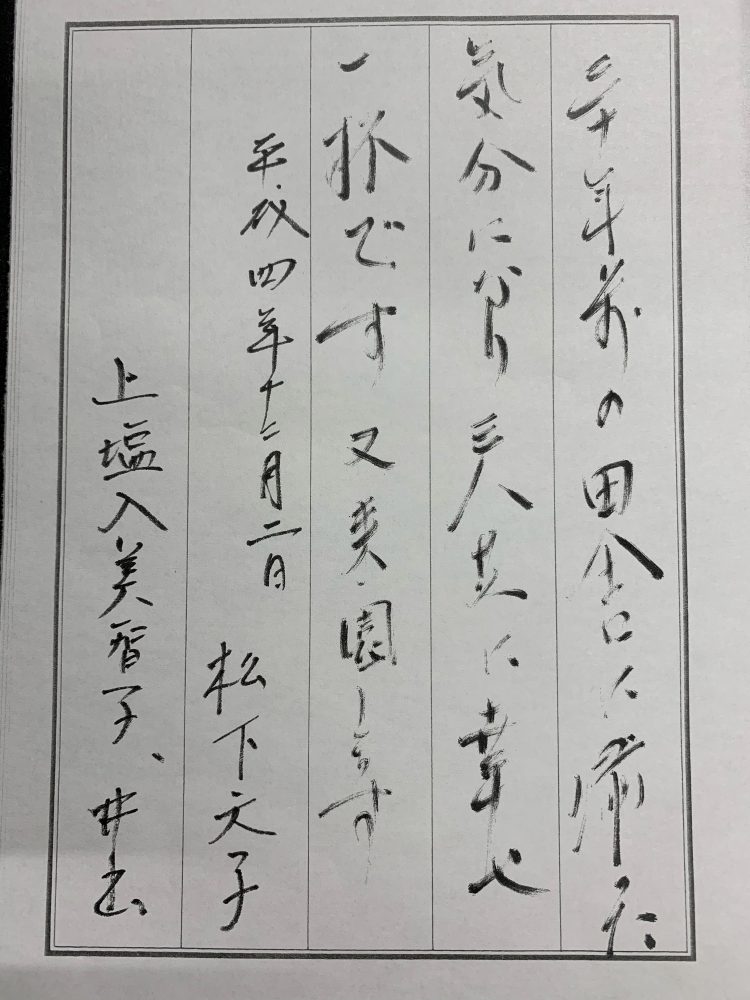 三十年前の田舎に帰った
気分になり三人共に幸せ
一杯です又来園します
平成四年十二月二日 松下文子
上塩入美智子、井出